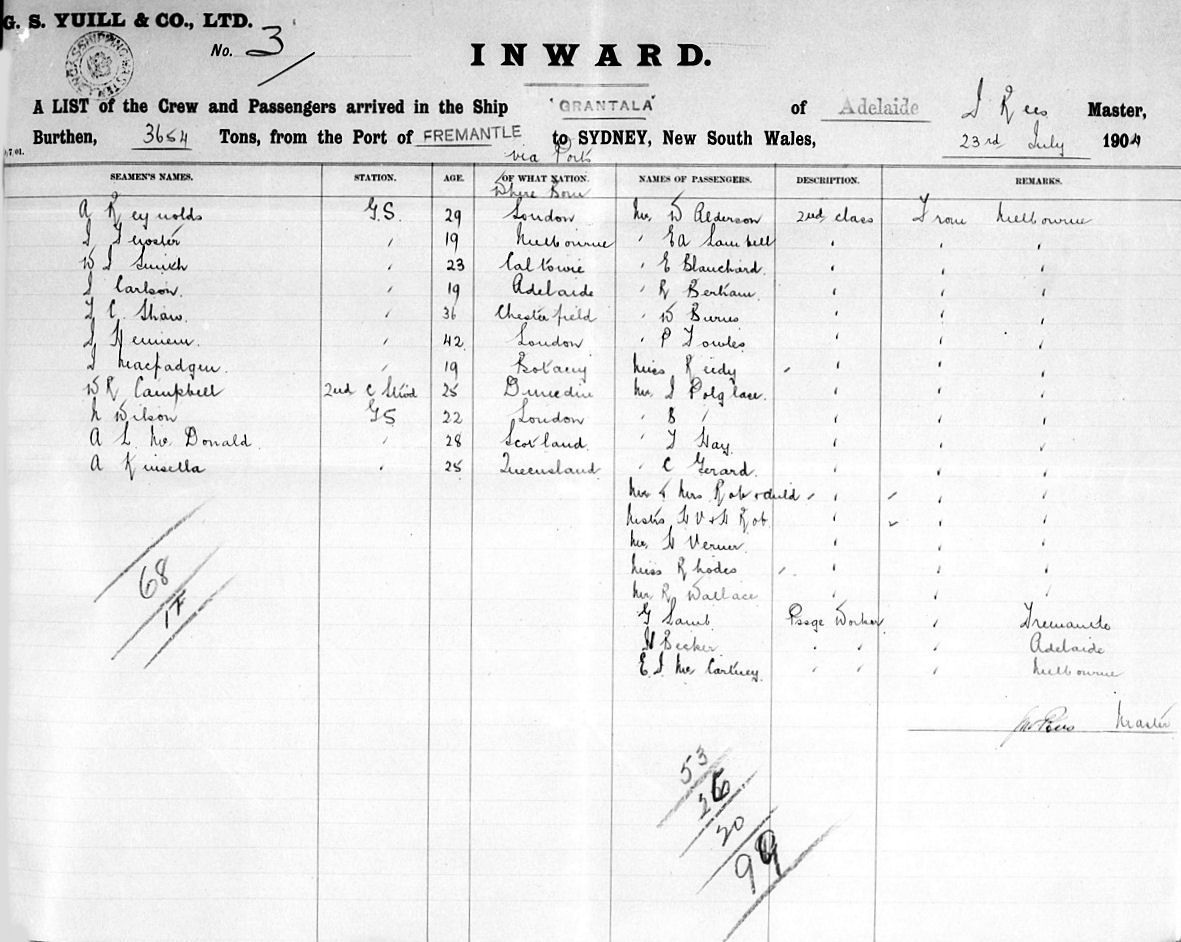 G. S. YUILL & CO., LTD.
No. 3
INWARD.
A LIST of the Crew and Passengers arrived in the Ship "GRANTALA" of Adelaide J Rees Master,
Burthen, 3654 Tons, from the Port of FREMANTLE to SYDNEY, New South Wales, 23rd July 1904
via Ports
SEAMEN'S NAMES. STATION. AGE. OF WHAT NATION. NAMES OF PASSENGERS. DESCRIPTION. REMARKS.
Where Born
A Reynolds G.S. 29 London Mr W Alderson 2nd class From Melbourne
19 Melbourne " E A Sambell " " "
W J Smith " 23 Caltowie " E Blanchard " " "
J Carlson " 19 Adelaide " R Bertram " " "
T C Shaw " 36 Chesterfield " W Burns " " "
" 42 London " P Fowles " " "
J Macfadgen " 19 Botany Miss Reidy " " "
W R Campbell 2nd C Stwd 25 Dunedin Mr J Polglase " " "
N Wilson GS 22 London " B " " " "
A L Mc Donald " 28 Scotland " T Hay " " "
A Kinsella " 25 Queensland " C Gerard " " "
Mr & Mrs Rob & child " " "
Mstrs W V & H Rob " " "
Mr H Verner " " "
Miss Rhodes " " "
Mr R Wallace " " "
G Lamb Psge Worker " Fremantle
H Becker " " " Adelaide
E J Mc Cartney " " " Melbourne
68
17
Jno Rees Master
53
26
20
99